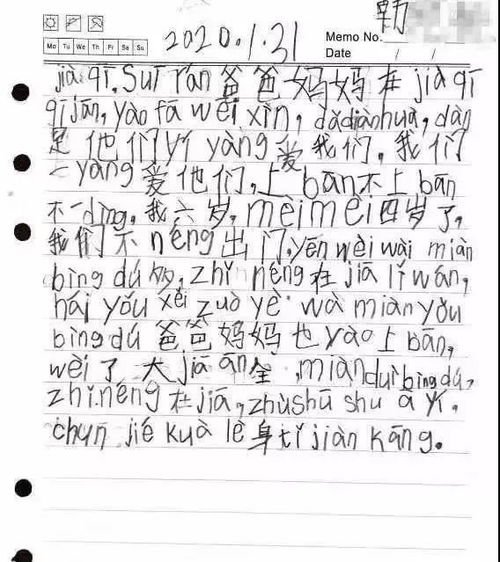 勒
2020.1.31
Memo No.
Mo Tu We Th Fr Sa Su
Date / /
jià qī. Suī rán 爸爸妈妈在 jià qī
qī jān, yào fā wēi xìn, dǎ diàn huà, dàn
是他们 yī yàng 爱我们, 我们
一 yàng 爱他们, 上 bān 不上 bān
不一 dìng, 我六岁, mei mei 四岁了,
我们不 néng 出门, yēn wèi wài miàn
bìng dú, zhǐ néng 在 jiā lǐ wán,
hái yǒu xěi zuò yè. wà miàn yǒu
bìng dú 爸爸妈妈也 yào 上 bān,
wèi 了 大 jiā ān 全, miàn duì bìng dú,
zhǐ néng 在 jiā, zhù shū shu ā yí,
chūn jié kuà lè 身 tǐ jiàn kāng。